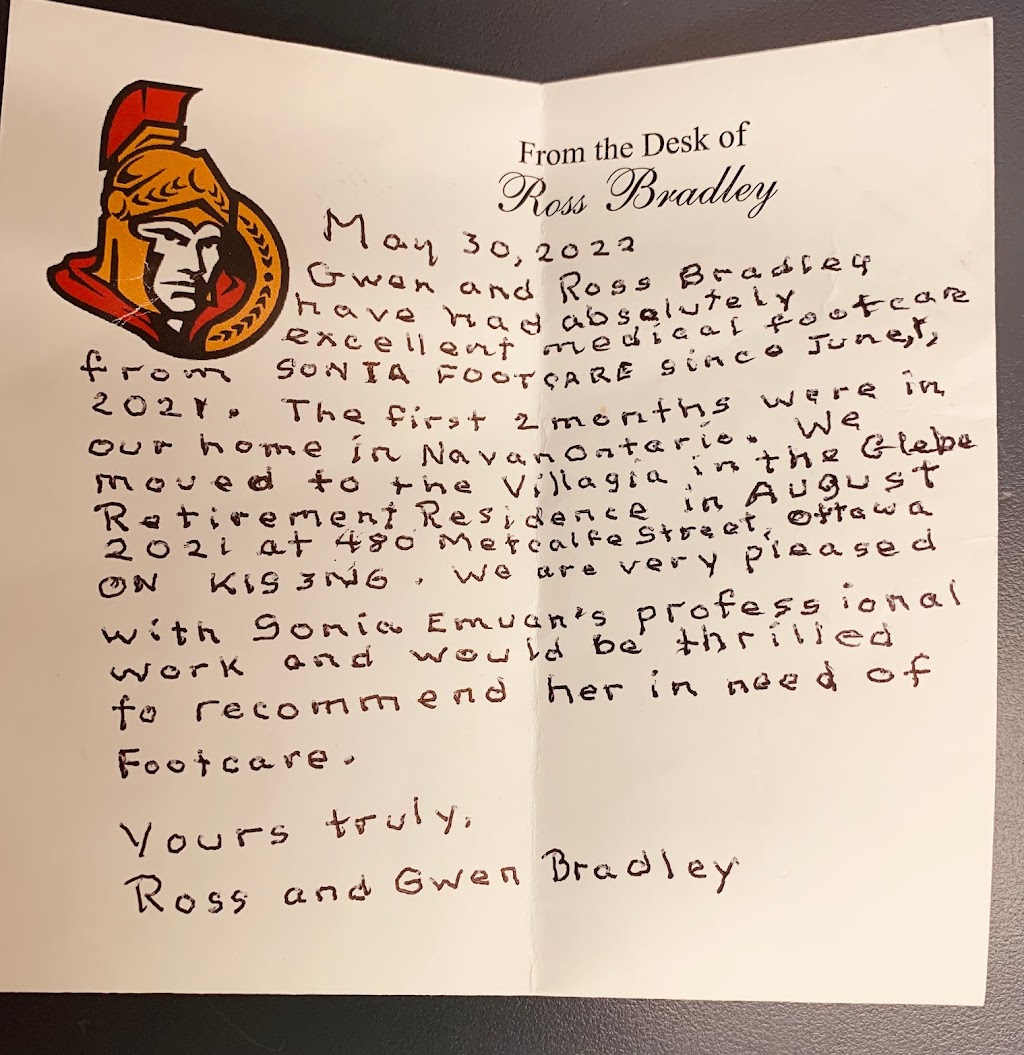 From the Desk of
Ross Bradley
May 30, 2022
Gwen and Ross Bradley
have had absolutely
excellent medical footcare
from SONIA FOOTCARE since June 1,
2021. The first 2 months were in
our home in Navan Ontario. We
moved to the Villagia in the Glebe
Retirement Residence in August
2021 at 480 Metcalfe Street, Ottawa
ON K1S 3N6. We are very pleased
with Sonia Emuan's professional
work and would be thrilled
to recommend her in need of
Footcare.
Yours truly,
Ross and Gwen Bradley